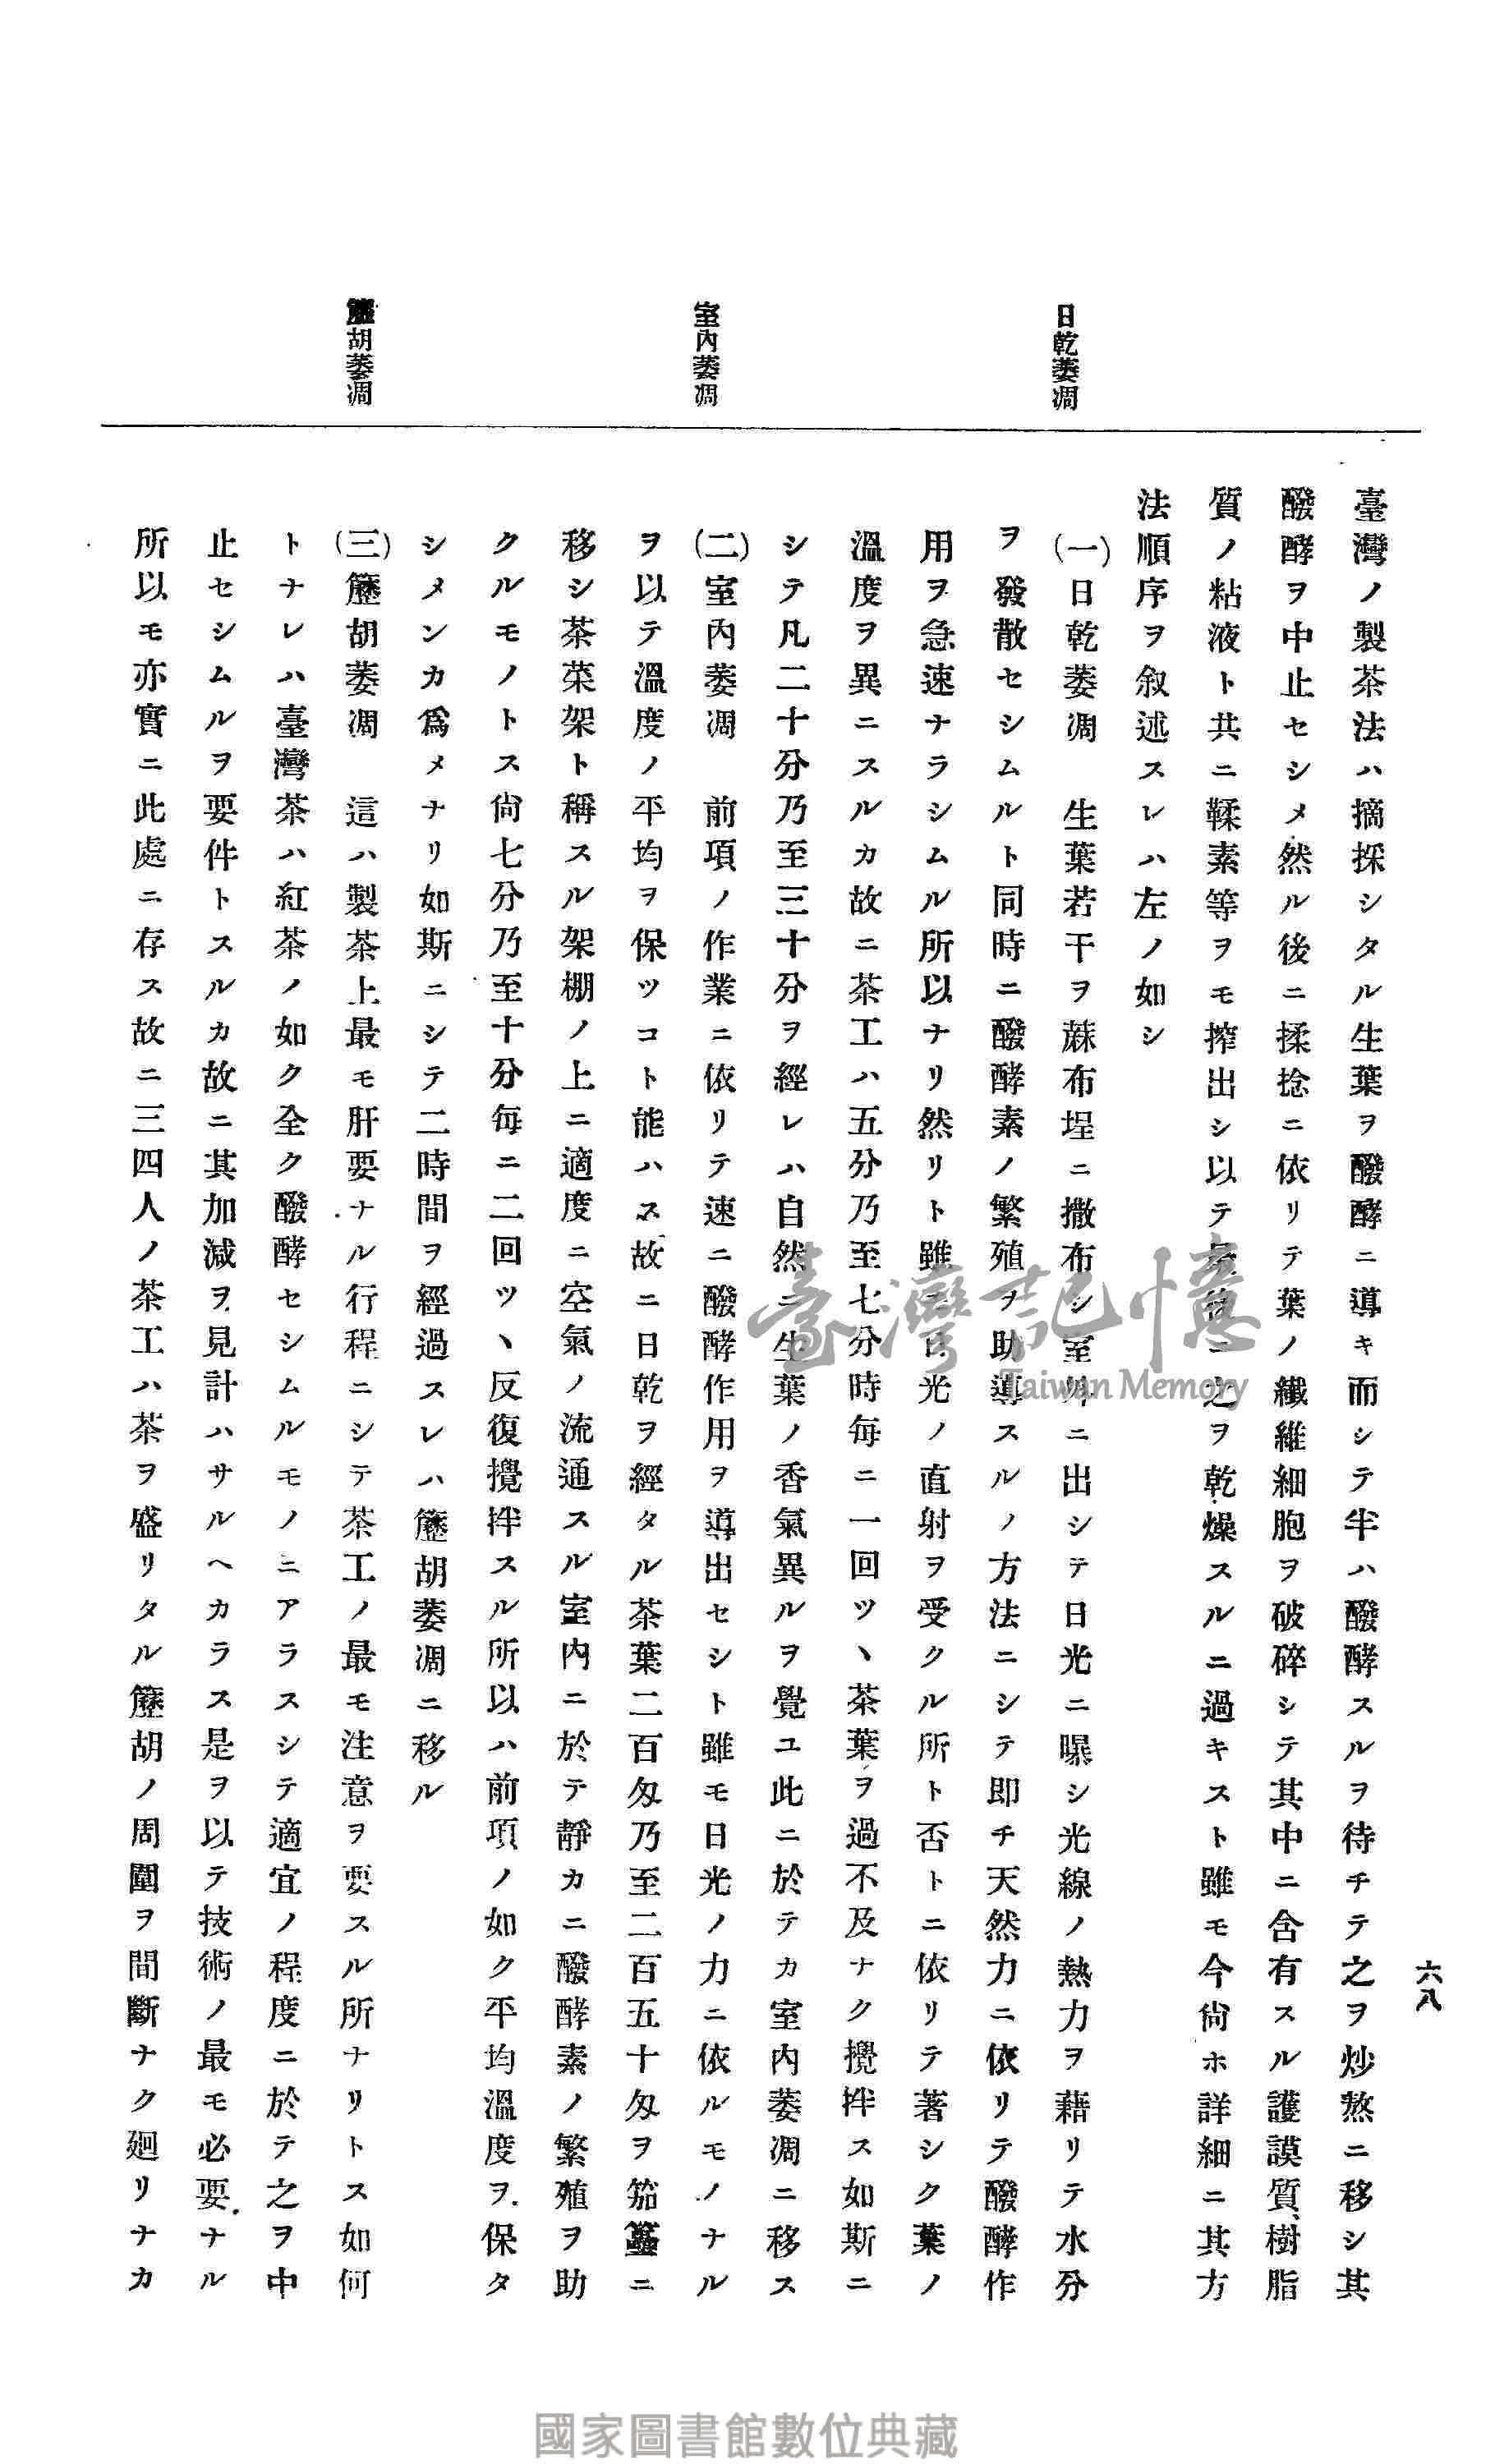 六八
日乾萎凋
室內萎凋
胡萎凋
臺灣ノ製茶法ハ摘採シタル生葉ヲ醱酵ニ導キ而シテ半ハ醱酵スルヲ待チテ之ヲ炒熬ニ移シ其
醱酵ヲ中止セシメ然ル後ニ揉捻ニ依リテ葉ノ纖維細胞ヲ破碎シテ其中ニ含有スル護謨質、樹脂
質ノ粘液ト共ニ鞣素等ヲモ搾出シ以テ最後ニ之ヲ乾燥スルニ過キスト雖モ今尙ホ詳細ニ其方
法順序ヲ叙述スレハ左ノ如シ
(一)日乾萎凋 生葉若干ヲ蔴布埕ニ撒布シ室外ニ出シテ日光ニ曝シ光線ノ熱力ヲ藉リテ水分
ヲ發散セシムルト同時ニ醱酵素ノ繁殖ヲ助導スルノ方法ニシテ即チ天然力ニ依リテ醱酵作
用ヲ急速ナラシムル所以ナリ然リト雖モ日光ノ直射ヲ受クル所ト否トニ依リテ著シク葉ノ
溫度ヲ異ニスルカ故ニ茶工ハ五分乃至七分時每ニ一回ツヽ茶葉ヲ過不及ナク攪拌ス如斯ニ
シテ凡二十分乃至三十分ヲ經レハ自然ニ生葉ノ香氣異ルヲ覺ユ此ニ於テカ室內萎凋ニ移ス
(二)室內萎凋 前項ノ作業ニ依リテ速ニ醱酵作用ヲ導出セシト雖モ日光ノ力ニ依ルモノナル
ヲ以テ溫度ノ平均ヲ保ツコト能ハス故ニ日乾ヲ經タル茶葉二百匁乃至二百五十匁ヲ笳ニ
移シ茶菜架ト稱スル架棚ノ上ニ適度ニ空氣ノ流通スル室內ニ於テ靜カニ醱酵素ノ繁殖ヲ助
クルモノトス尙七分乃至十分每ニ二回ツヽ反復攪拌スル所以ハ前項ノ如ク平均溫度ヲ保タ
シメンカ爲メナリ如斯ニシテ二時間ヲ經過スレハ胡萎凋ニ移ル
(三)胡萎凋 這ハ製茶上最モ肝要ナル行程ニシテ茶工ノ最モ注意ヲ要スル所ナリトス如何
トナレハ臺灣茶ハ紅茶ノ如ク全ク醱酵セシムルモノニアラスシテ適宜ノ程度ニ於テ之ヲ中
止セシムルヲ要件トスルカ故ニ其加減ヲ見計ハサルヘカラス是ヲ以テ技術ノ最モ必要ナル
所以モ亦實ニ此處ニ存ス故ニ三四人ノ茶工ハ茶ヲ盛リタル胡ノ周圍ヲ間斷ナク廻リナカ
臺灣記憶
Taiwan Memory
國家圖書館數位典藏